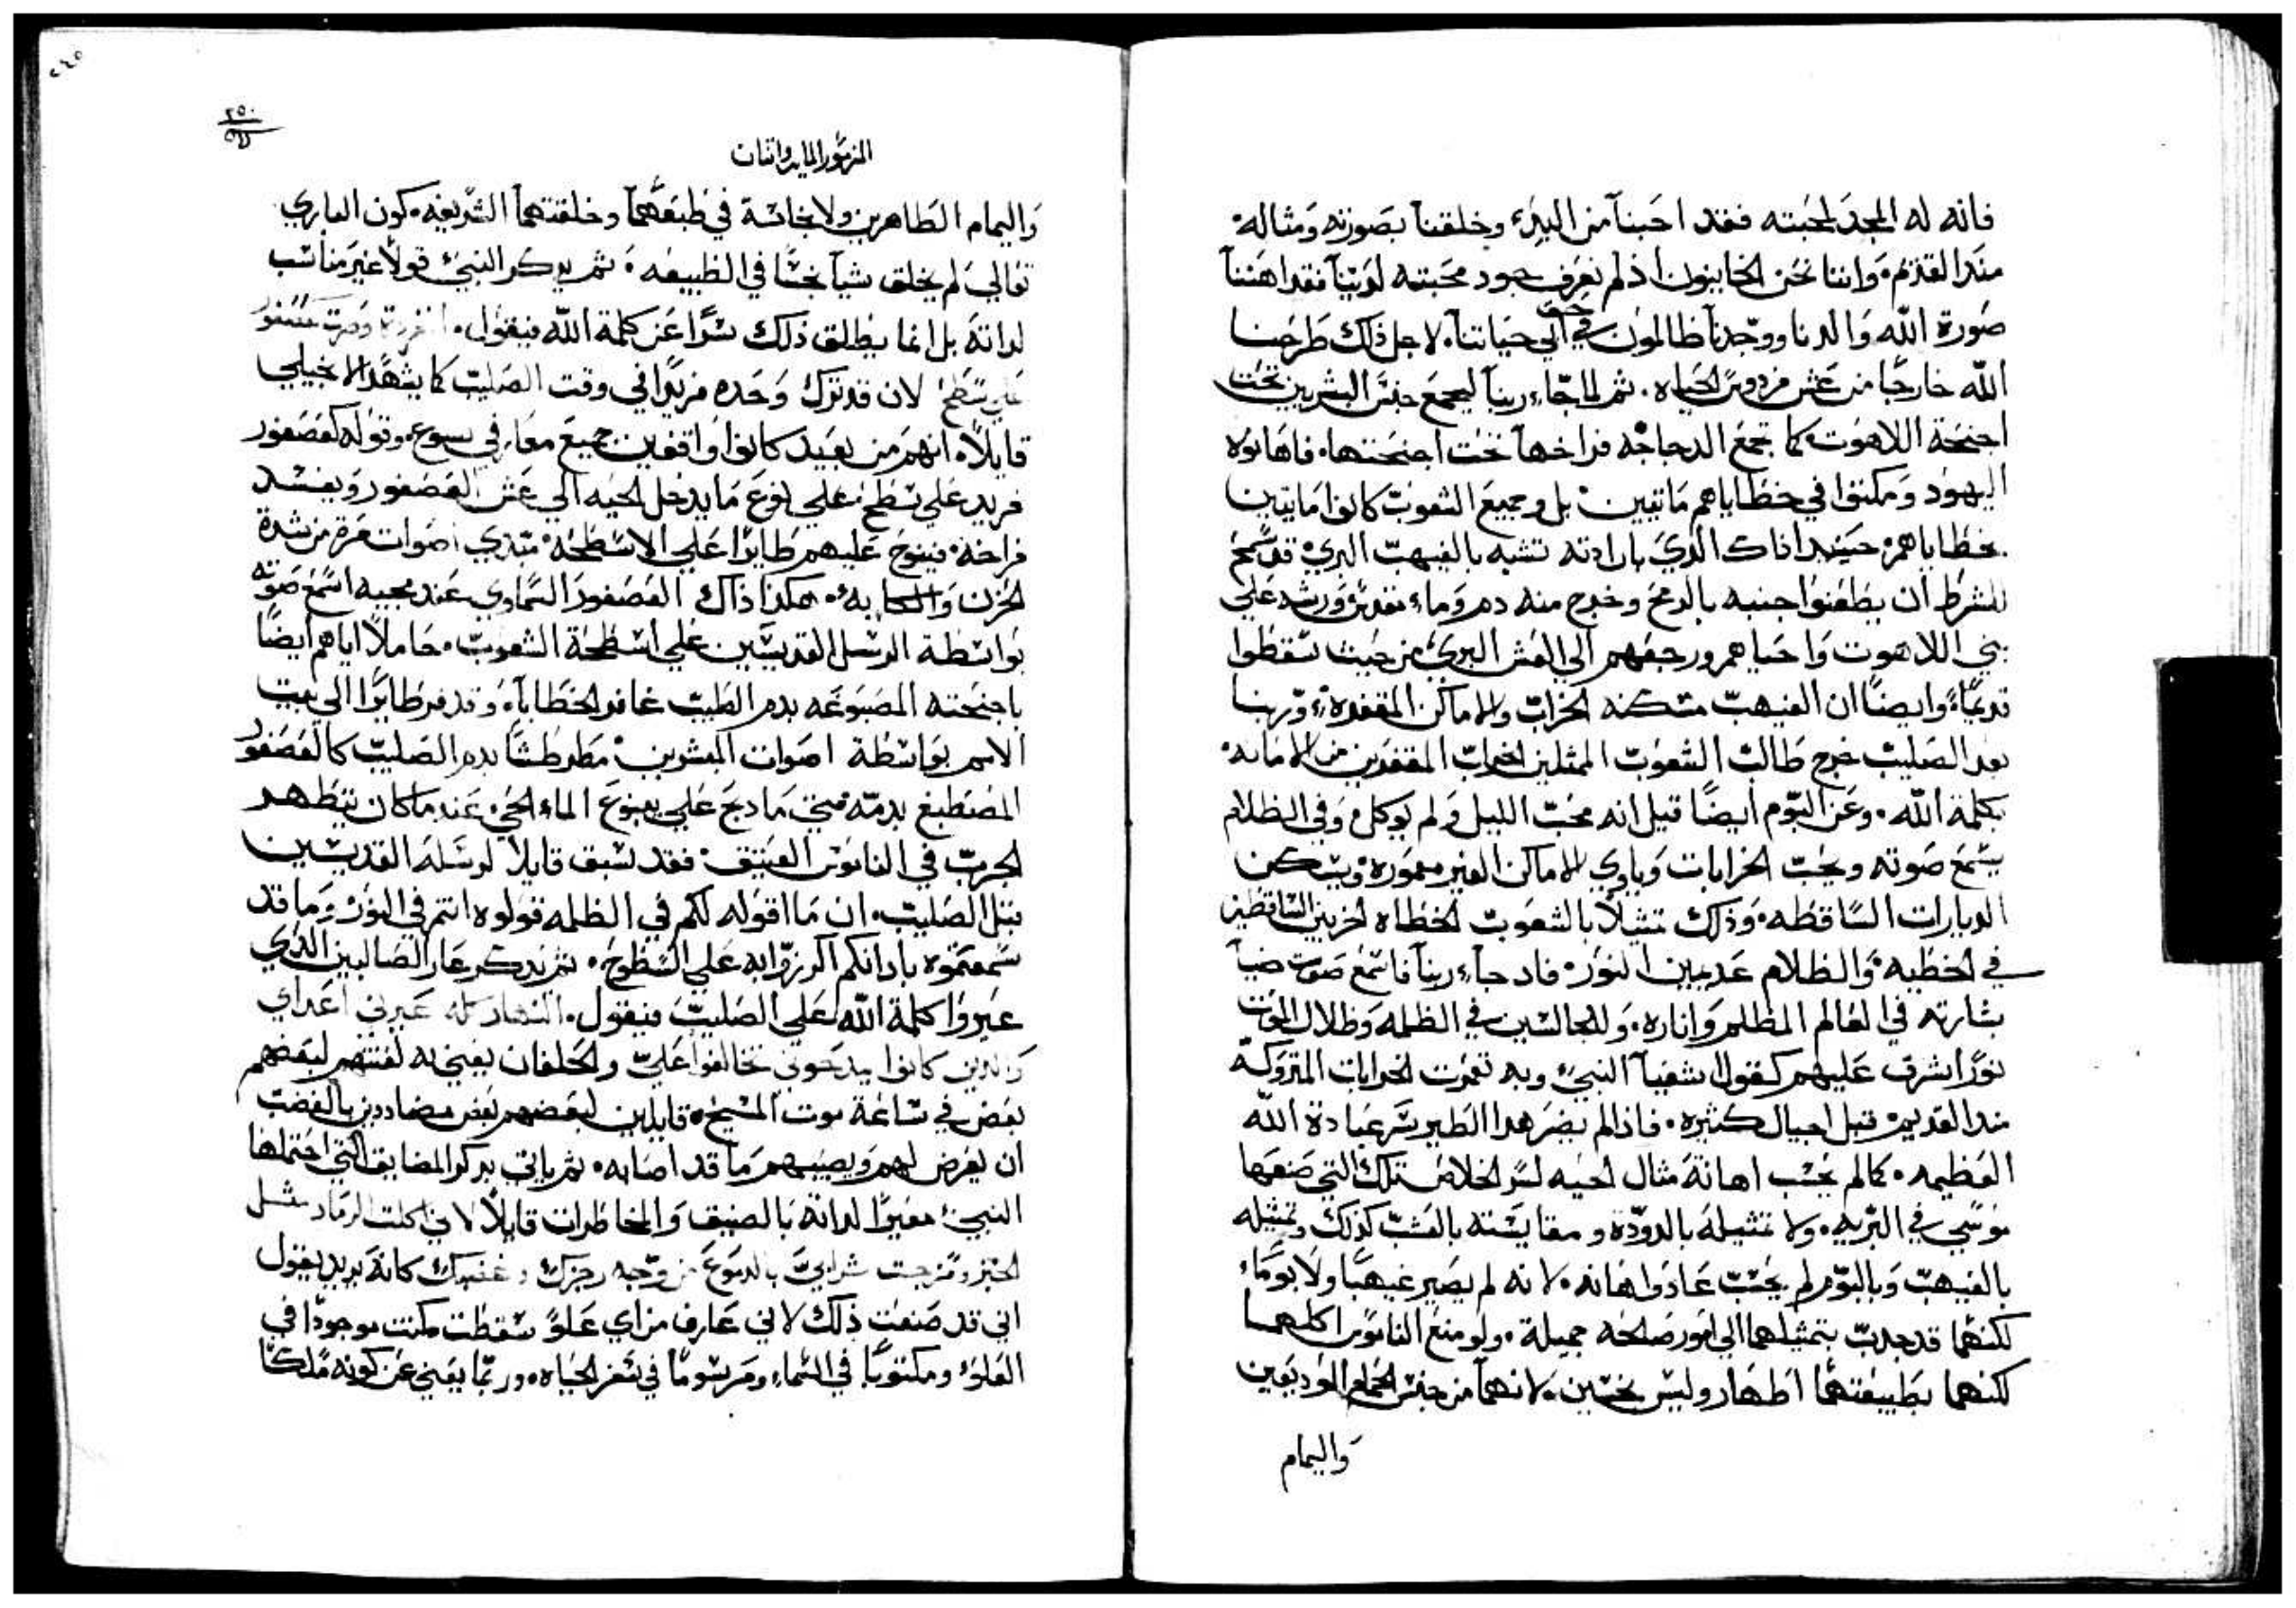 فانه له المجد لمحبته فقد احبنا من البدء وخلقنا بصورته ومثاله
منذ القدم، واننا نحن الخايبون اذ لم نعرف جود محبته لدينا فقد اهننا
صورة الله والدنا ووجدنا ظالمون في حق ابي حياتنا، لاجل ذلك طرحنا
الله خارجًا من عش فردوس الحياه. ثم لما جاء ربنا ليجمع جنس البشريين تحت
اجنحة اللاهوت كما تجمع الدجاجه فراخها تحت اجنحتها، فاهانوه
اليهود ومكثوا في خطاياهم مايتين بل وجميع الشعوب كانوا مايتين
بخطاياهم، حينيد اذاك الذي بارادته تشبه بالغيهب البري قد سمح
للشرط ان يطعنوا جنبه بالرمح وخرج منه دم وماء ورشه علي
بني اللاهوت واحياهم ورجعهم الي العش البري من حيث سقطوا
قديمًا، وايضًا ان الغيهب مسكنه الخراب والاماكن المقفره، وربنا
بعد الصليب خرج طالب الشعوب الممثلين الخراب المقفرين من الامانه
بكلمة الله. وعن البوم ايضًا قيل انه محب الليل ولم يوكل وفي الظلام
يسمع صوته ويحب الخرابات وياوي الاماكن الغير معموره ويسكن
الديارات الساقطه، وذلك تمثيلاً بالشعوب الخطاه الخربين الساقطين
في الخطيه، والظلام عديمين النور، فاد جاء ربنا فاسمع صوت ضيا
بشارته في العالم المظلم واناره، وللجالسين في الظلمه وظلال الموت
نورًا اشرق عليهم كقول اشعيا النبي، وبه تعمرت الخرابات المتروكه
مند القديم قبل اجيال كثيره. فاذا لم يضر هدا الطير شرعبادة الله
العظيمه، كما لم يحسب اهانة مثال الحيه لسر الخلاص تلك التي صنعها
موسي في البريه، ولا تمثيله بالدودة ومقايسته بالعشب كذلك وتمثيله
بالغيهب وبالبوم لم يحسب عارًا واهانه، لانه لم يصير غيهبًا ولا بومًا،
لكنهما قد جدب بتمثيلهما الي امور صالحه جميلة، ولو منع الناموس اكلهما
لكنهما بطبيعتهما اطهار وليس نجسين، لانهما من جنس الحمام الوديعين
واليمام
٢٤٥
٢٥٠
المزمور المايه واتنان
واليمام الطاهرين ولا نجاسة في طبعهما وخلقتهما الشريفه، كون الباري
تعالي لم يخلق شيآ نجسًا في الطبيعه، ثم يدكر النبي قولاً غير مناسب
لداته بل انما يطلق ذلك سرًا عن كلمة الله فيقول، وصرت كعصفور
علي سطح لان قد ترك وحده فريدًا في وقت الصليب كما يشهد الانجيلي
قايلاً، انهم من بعيد كانوا واقفين جميع معارفي يسوع، وقوله كعصفور
فريد علي سطح، علي نوع ما يدخل الحيه الي عش العصفور ويفسد
فراخه، فينوح عليهم طايرًا علي الاسطحه، مبدي اصوات مره من شدة
الحزن والكابه، هكذا ذاك العصفور السماوي عند مجيه اسمع صوته
بواسطة الرسل القديسين علي اسطحة الشعوب، حاملاً اياهم ايضًا
باجنحته المصبوغه بدم الطيب غافر الخطايا، وقد فر طايرًا الي بيت
الاسم بواسطة اصوات المبشرين، مطرطشًا بدم الصليب كالعصفور
المصطبغ بدمه متي ما دبح علي ينبوع الماء الحي، عندما كان يتطهر
الجرب في الناموس العتيق، فقد سبق قايلاً لرسله القديسين
قبل الصليب، ان ما اقوله لكم في الظلمه قولوه انتم في النور، وما قد
سمعتموه بادانكم اكرزوا به علي السطوح، ثم يدكر عار الصالبين الذي
عيروا كلمة الله علي الصليب فيقول، النهار كله عيرني اعداي
والدين كانوا يمدحوني تحالفوا علي والحلفان يعني به لعنتهم لبعضهم
بعض في ساعة موت المسيح، قايلين لبعضهم بعض مضاددين بالغضب
ان يعرض لهم ويصيبهم ما قد اصابه، ثم ياتي يدكر المضايق التي احتملها
النبي، معيرًا لداته بالضيق والمخاطرات قايلاً لاني اكلت الرماد مثل
الخبز ومزجت شرابي بالدموع من وجه رجزك وغضبك كانه يريد يقول
اني قد صنعت ذلك لاني عارف من اي علو سقطت موجودًا في
العلو، ومكتوبًا في السماء ومرسومًا في سفر الحياه، وربما يعني عن كونه ملكًا